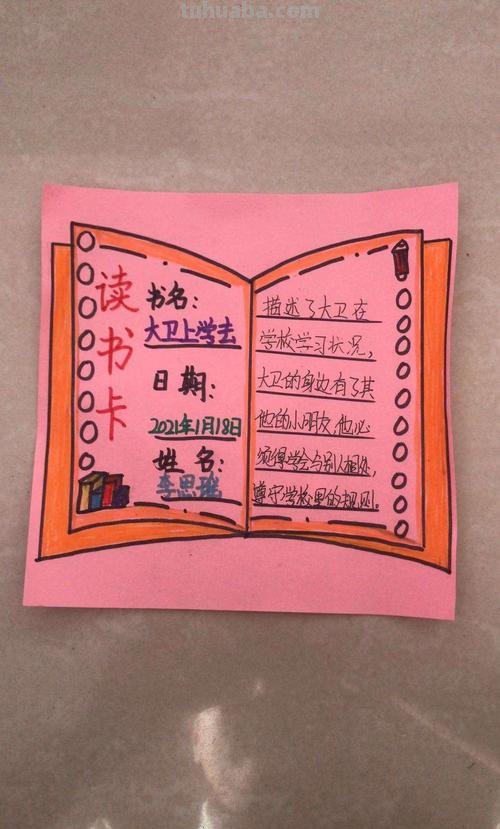 tuhuaba.com
读书卡
书名:
大卫上学去
日期:
2021年1月18日
姓名:
李思瑶
描述了大卫在
学校学习状况,
大卫的身边有了其
他的小朋友,他必
须得学会与别人相处,
遵守学校里的规则。